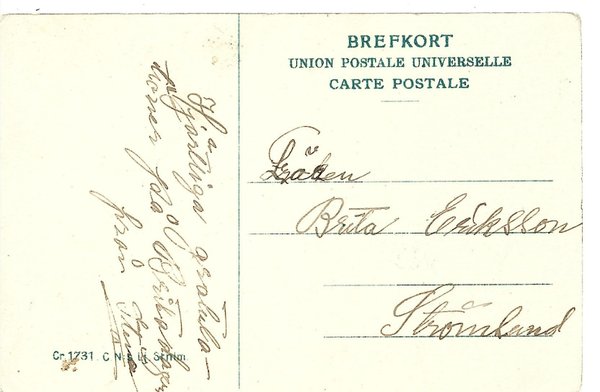 BREFKORT
UNION POSTALE UNIVERSELLE
CARTE POSTALE
Fröken
Brita Eriksson
Strömlund
Hjärtliga gratula-
tioner på Brita dagen
från Stina
Cr 1231 C N:s Lj. Sthlm